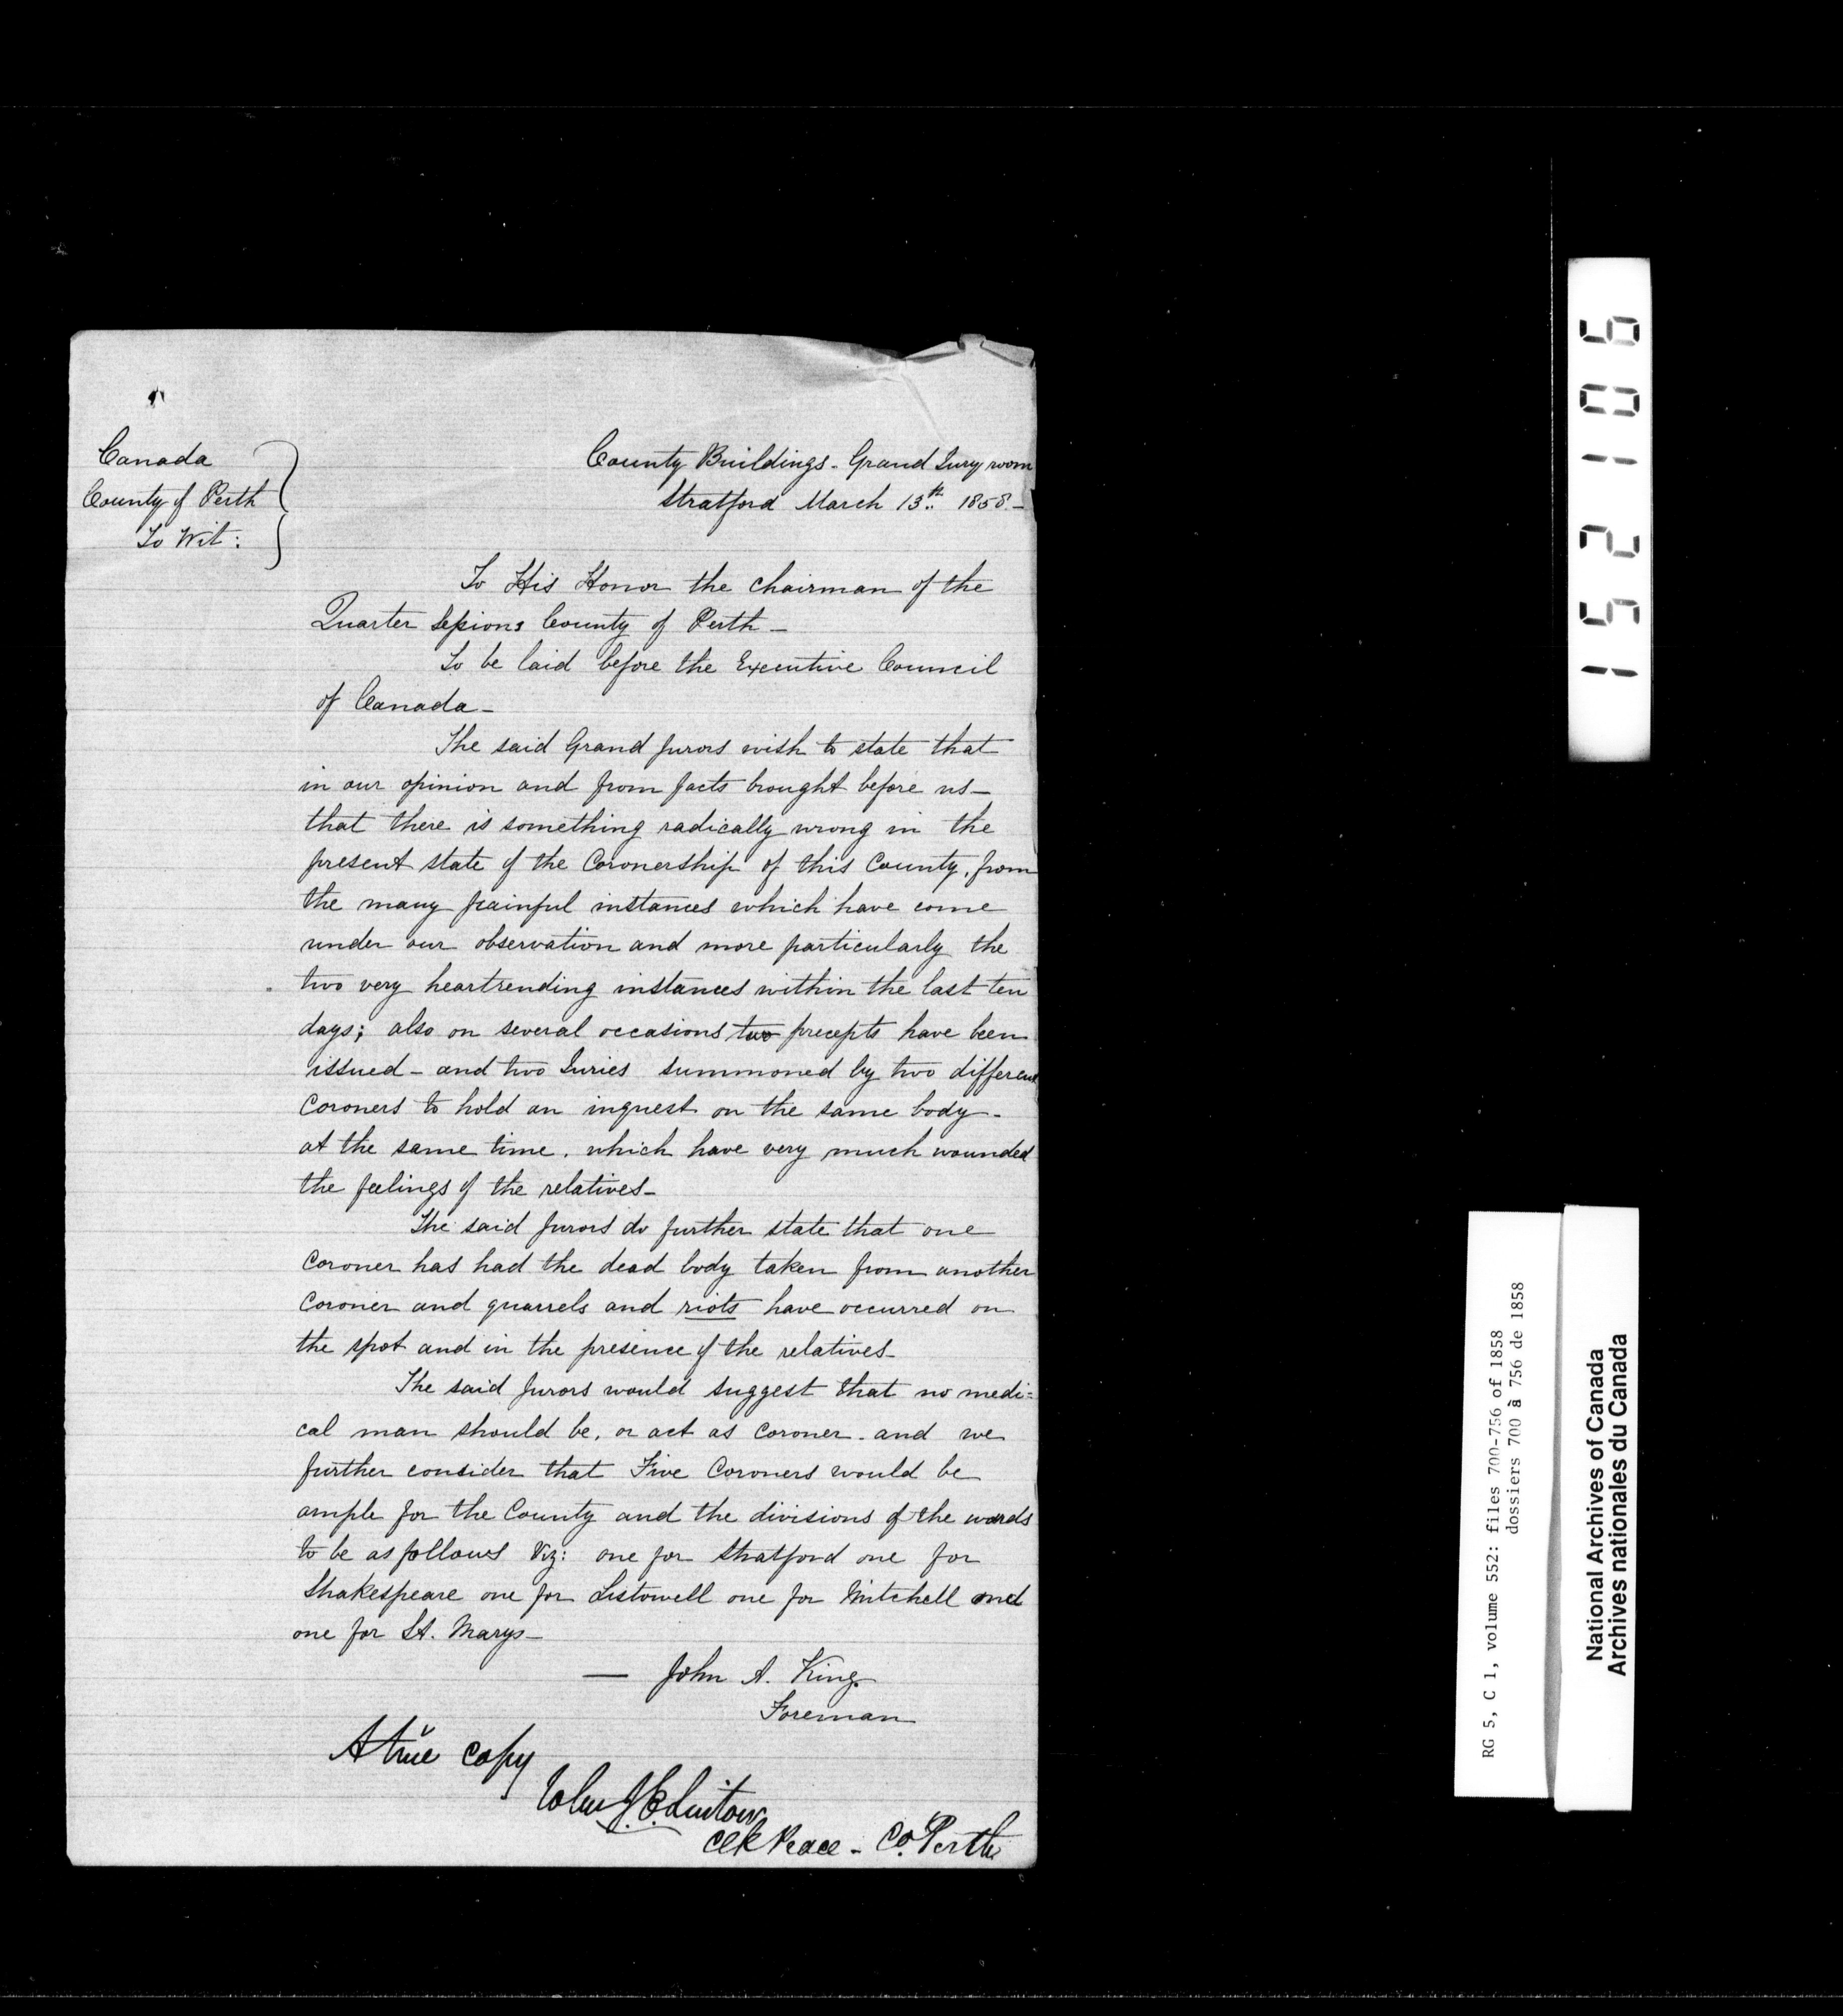 Canada
County of Perth
To Wit:
County Buildings - Grand Jury room
Stratford March 13th 1858 -
To His Honor the Chairman of the
Quarter Sessions County of Perth -
To be laid before the Executive Council
of Canada -
The said Grand Jurors wish to state that
in our opinion and from facts brought before us -
that there is something radically wrong in the
present state of the Coronership of this County, from
the many painful instances which have come
under our observation and more particularly the
two very heartrending instances within the last ten
days; also on several occasions two precepts have been
issued - and two Juries summoned by two different
Coroners to hold an inquest on the same body -
at the same time. which have very much wounded
the feelings of the relatives -
The said Jurors do further state that one
Coroner has had the dead body taken from another
Coroner and quarrels and riots have occurred on
the spot and in the presence of the relatives -
The said Jurors would suggest that no medi=
cal man should be, or act as Coroner. and we
further consider that Five Coroners would be
ample for the County and the divisions of the wards
to be as follows Viz: one for Stratford one for
Shakespeare one for Listowell one for Mitchell and
one for St. Marys -
— John A. King
Foreman
A true copy
John J. E. Linton
Clk Peace - Co. Perth
152106
RG 5, C 1, volume 552: files 700-756 of 1858
dossiers 700 à 756 de 1858
National Archives of Canada
Archives nationales du Canada